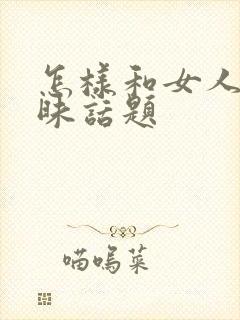 怎样和女人
昧話題
喵嗚菜